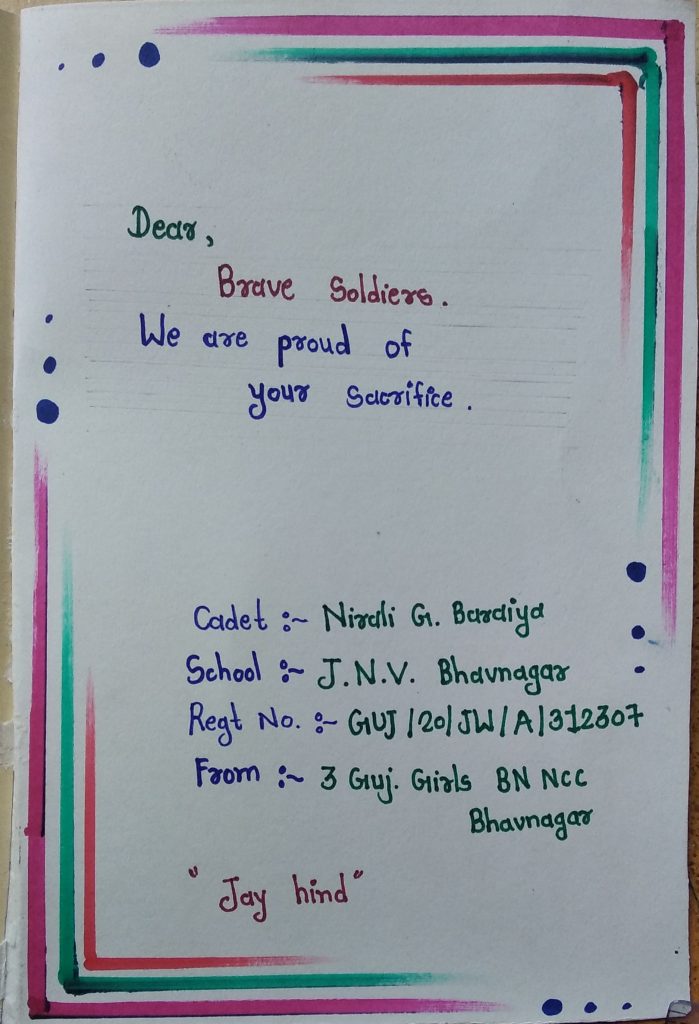 Dear,
Brave Soldiers.
We are proud of
your sacrifice.
Cadet :~ Nirali G. Baraiya
School :~ J.N.V. Bhavnagar
Regt No. :~ GUJ/20/JW/A/312307
From :~ 3 Guj. Girls BN NCC
Bhavnagar
"Jay hind"